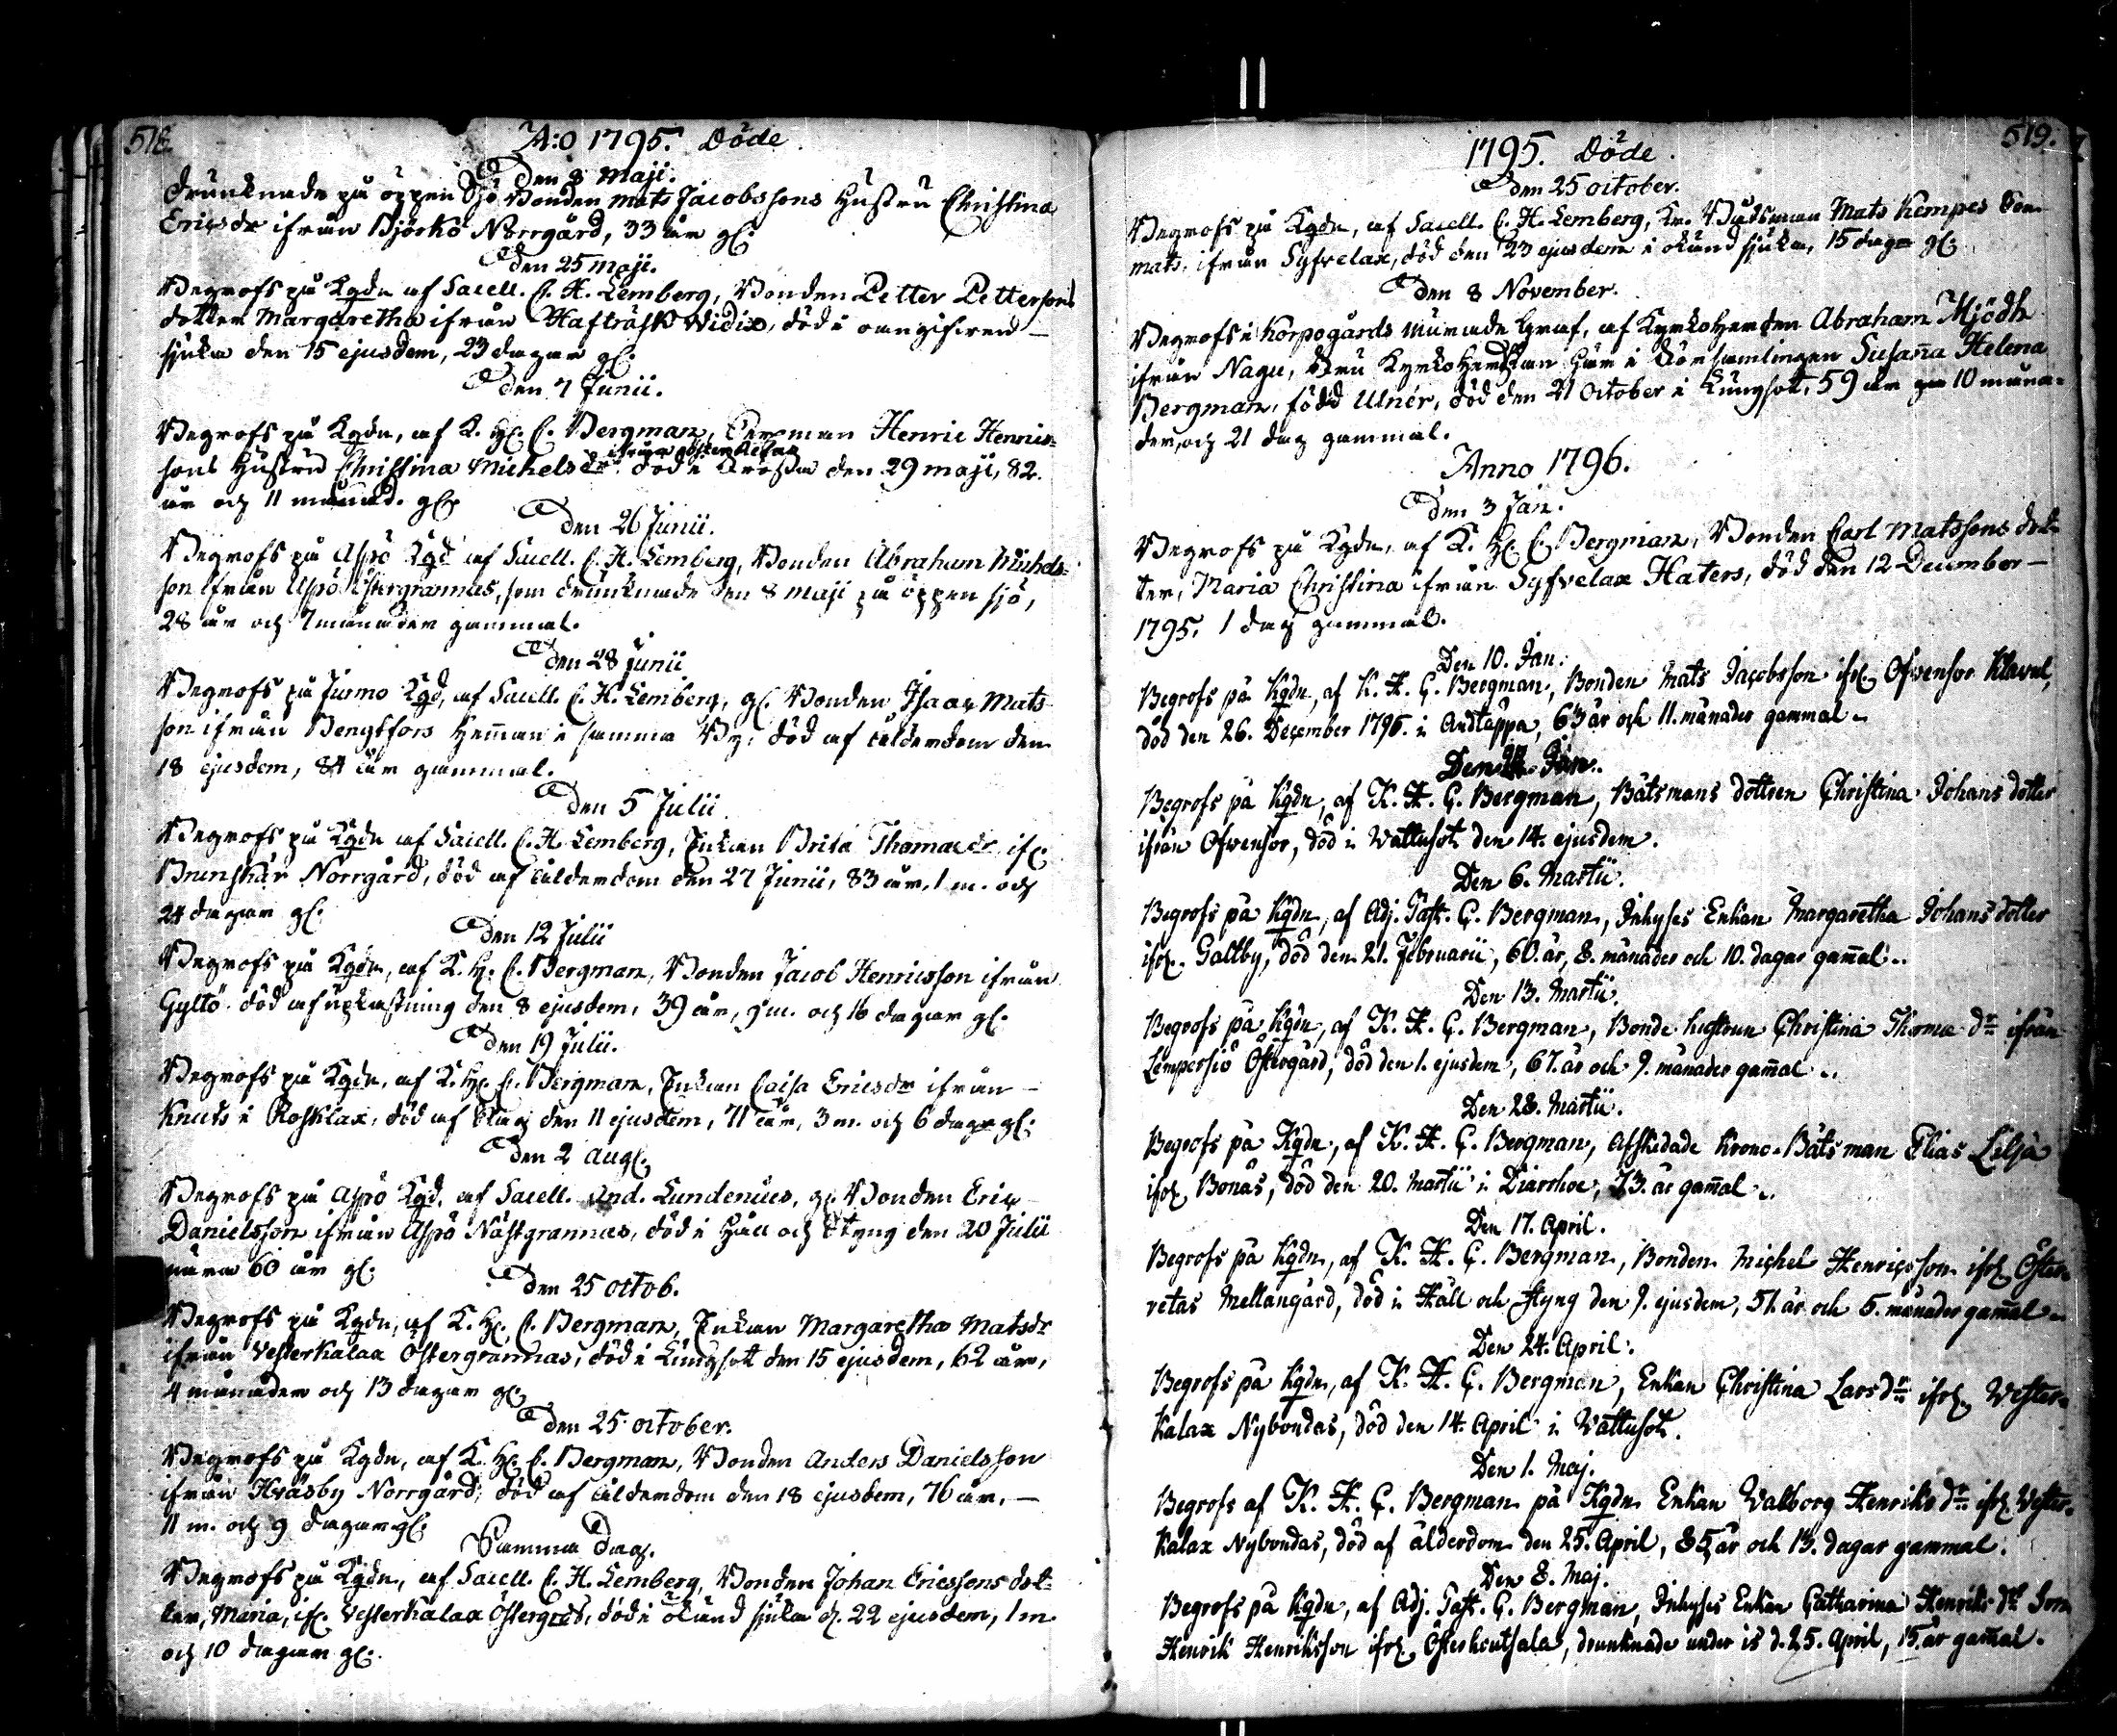 518
A:o 1795. Döde
Den 8 Maji.
Drunknade på öppen Sjö Bonden Mats Jacobssons Hustru Christina
Ericsdr ifrån Björkö Norrgård, 33 år gl.
Den 25 Maji.
Begrofs på Kgdn af Sacell. C. H. Lemberg, Bonden Petter Pettersons
dotter Margaretha ifrån Hafträsk Widix, död i oangifven
sjuka den 15 ejusdem, 23 dagar gl.
Den 7 Junii.
Begrofs på Kgdn, af K. H. C. Bergman, Henric Henric-
sons Hustru Christina Michelsdr ifrån död i den 29 maji, 82.
år och 11 månad. gl.
Den 26 Junii.
Begrofs på Aspö Kgd af Sacell. C. H. Lemberg, Bonden Abraham Michels-
son ifrån Aspö Östergrannas, som drunknade den 8 maji på öppen sjö,
28 år och 7 månader gammal.
Den 28 Junii
Begrofs på Jurmo Kgd, af Sacell. C. H. Lemberg, gl. Bonden Isaac Mats
son ifrån Bengtfors Hemman i samma By, död af ålderdom den
18 ejusdem, 84 år gammal.
Den 5 Julii
Begrofs på Kgdn af Sacell. C. H. Lemberg, Enkan Brita Thomasdr ifr.
Brunskär Norrgård, död af ålderdom den 27 Junii, 83 år, 1 m. och
24 dagar gl.
Den 12 Julii
Begrofs på Kgdn, af K. H. C. Bergman, Bonden Jacob Henricsson ifrån
Gyltö död af upkastning den 8 ejusdem, 39 år, 9 m. och 16 dagar gl.
Den 19 Julii.
Begrofs på Kgdn, af K. H. C. Bergman, Enkan Caisa Ericsdr ifrån
Knuts i Rosklax, död af Slag den 11 ejusdem, 71 år, 3 m. och 6 dagr gl.
Den 2 Aug.
Begrofs på Aspö Kgd. af Sacell. And. Lundenius, gl. Bonden Eric
Danielsson ifrån Aspö Nästgrannas, död i Håll och Styng den 20 Julii
nära 60 år gl.
Den 25 Octob.
Begrofs på Kgdn, af K. H. C. Bergman, Enkan Margaretha Matsdr
ifrån Vesterkalax Östergrannas, död i Lungsot den 15 ejusdem, 62 år,
4 månader och 13 dagar gl.
Den 25 October.
Begrofs på Kgdn, af K. H. C. Bergman, Bonden Anders Danielsson
ifrån Hväsby Norrgård, död af ålderdom den 18 ejusdem, 76 år,
11 m. och 9 dagar gl.
Samma Dag.
Begrofs på Kgdn, af Sacell. C. H. Lemberg, Bonden Johan Ericssons dot-
ter, Maria, ifr. Vesterkalax Östergrd, död i okänd sjuka d. 22 ejusdem, 1 m.
och 10 dagar gl.
519.
1795. Döde.
Den 25 October.
Begrofs på Kgdn, af Sacell. C. H. Lemberg, Kr. Båtsman Mats Kempes Son
Mats, ifrån Syfvelax, död den 23 ejusdem i okänd sjuka, 15 dagar gl.
Den 8 November.
Begrofs i Korpogårds murade Graf, af Kyrkoherden Abraham Mjödh
ifrån Nagu, Fru Kyrkoherdskan här i Församlingen Susanna Helena
Bergman, född Ulnér, död den 21 October i Lungsot, 59 år 10 måna-
der, och 21 dag gammal.
Anno 1796.
Den 3 Jan.
Begrofs på Kgdn, af K. H. C. Bergman, Bonden Carl Matssons dot-
ter, Maria Christina ifrån Syfvelax Haters, död den 12 December
1795. 1 dag gammal.
Den 10. Jan.
Begrofs på Kgdn, af K. H. C. Bergman, Bonden Mats Jacobsson ifr. Ofvensor Klavul,
död den 26. December 1795. i Andtäppa, 63 år och 11. månader gammal.
Den Jan.
Begrofs på Kgdn, af K. H. C. Bergman, Båtsmans dottren Christina Johans dotter
ifrån Ofvensor, död i Wattusot den 14. ejusdem.
Den 6. Martii.
Begrofs på Kgdn, af Adj. Past. C. Bergman, Inhyses Enkan Margaretha Johans dotter
ifr. Galtby, död den 21. Februarii, 60. år, 8. månader och 10. dagar gamal.
Den 13. Martii.
Begrofs på Kgdn, af K. H. C. Bergman, Bonde hustrun Christina Thomæ dr ifrån
Lempersiö Östergård, död den 1. ejusdem, 67. år och 9. månader gamal.
Den 28. Martii.
Begrofs på Kgdn, af K. H. C. Bergman, Afskedade Krono-Båtsman Elias Lilja
ifr. Bonäs, död den 20. Martii i Diarrhoe, 73. år gamal.
Den 17. April.
Begrofs på Kgdn, af K. H. C. Bergman, Bonden Michel Henricsson ifr. Öster-
retas Mellangård, död i Håll och styng den 9. ejusdem, 51. år och 5. månader gamal.
Den 24. April.
Begrofs på Kgdn, af K. H. C. Bergman, Enkan Christina Larsdr ifr. Wester-
kalax Nybondas, död den 14. April i Wattusot.
Den 1. Maj.
Begrofs af K. H. C. Bergman på Kgdn Enkan Walborg Henriksdr ifr. Wester-
kalax Nybondas, död af ålderdom den 25. April, 85 år och 13. dagar gammal.
Den 8. Maj.
Begrofs på Kgdn, af Adj. Past. C. Bergman, Inhyses Enkan Catharina Henriksdr Son
Henrik Henriksson ifr. Österhoutsala, drunknade under is d. 25. April, 15 år gamal.